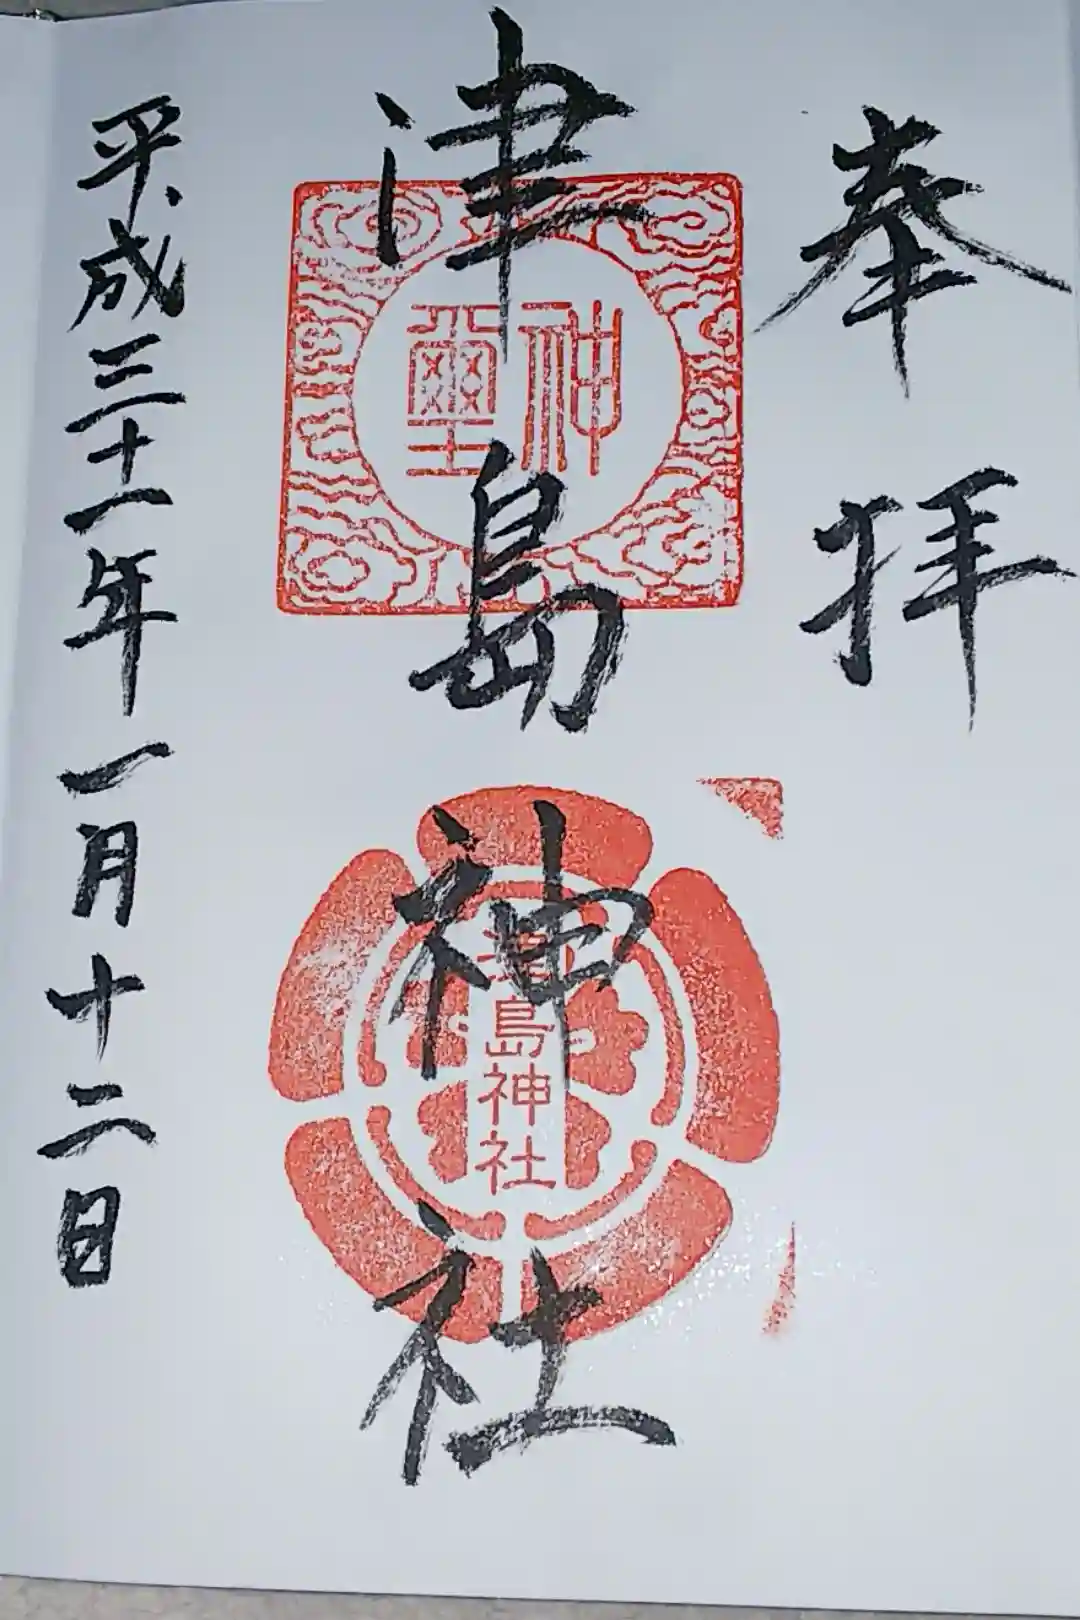 奉拝
津島神社
神璽
津島神社
平成三十一年一月十二日